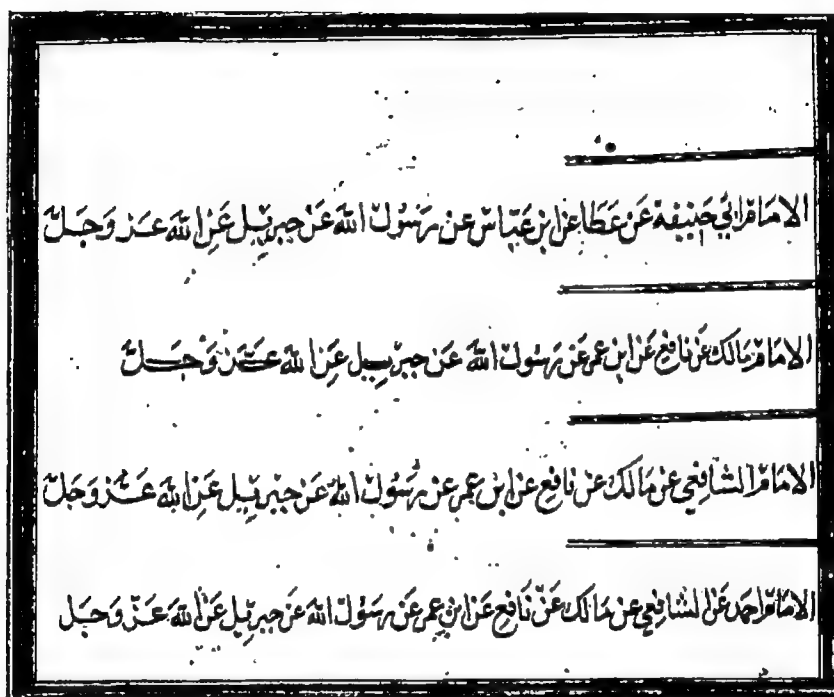 الامام ابي حنيفة عن عطا عن ابن عباس عن رسول الله عن جبريل عن الله عز وجل
الامام مالك عن نافع عن ابن عمر عن رسول الله عن جبريل عن الله عز وجل
الامام الشافعي عن مالك عن نافع عن ابن عمر عن رسول الله عن جبريل عن الله عز وجل
الامام احمد عن الشافعي عن مالك عن نافع عن ابن عمر عن رسول الله عن جبريل عن الله عز وجل